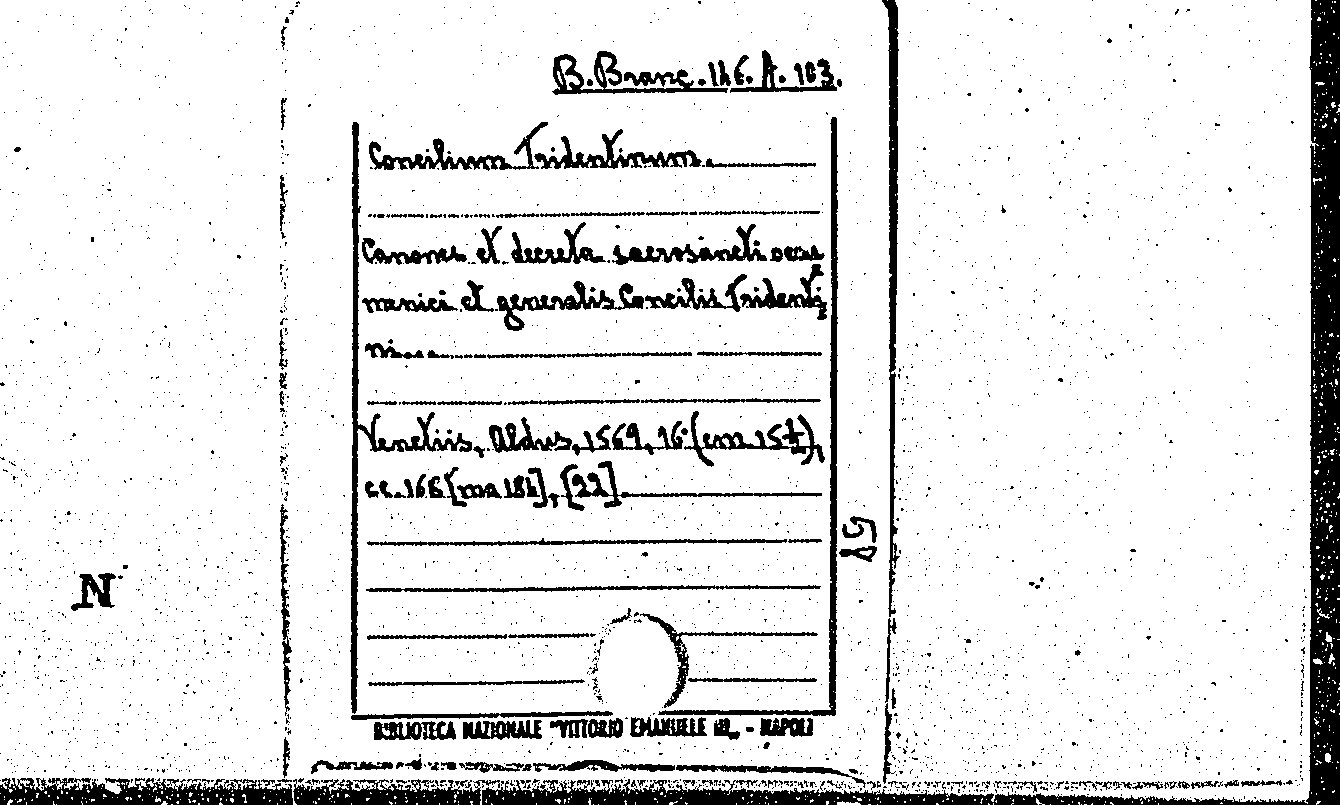 B. Branc. 146. A. 103.
Concilium Tridentinum.
Canones et decreta sacrosancti oecu=
menici et generalis Concilis Tridenti=
ni...
Venetiis, Aldus, 1569, 16° (cm 15 ½),
cc. 166 [ma 184], [22].
BIBLIOTECA NAZIONALE "VITTORIO EMANUELE III„ - NAPOLI
N